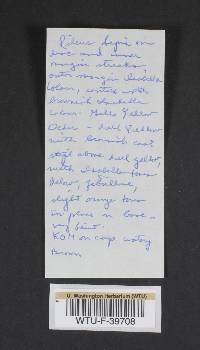 Pileus sepia on
disc and inner
margin streaks,
outer margin Isabella
colour, context with
brownish Isabella
colour. Gills Yellow
Ocher - dull yellow
with brownish cast
stipe above dull yellow,
with Isabella tone
below, fibrillose,
slight orange tone
in places in base -
very faint.
KOH on cap
brown
U. Washington Herbarium (WTU)
WTU-F-39708